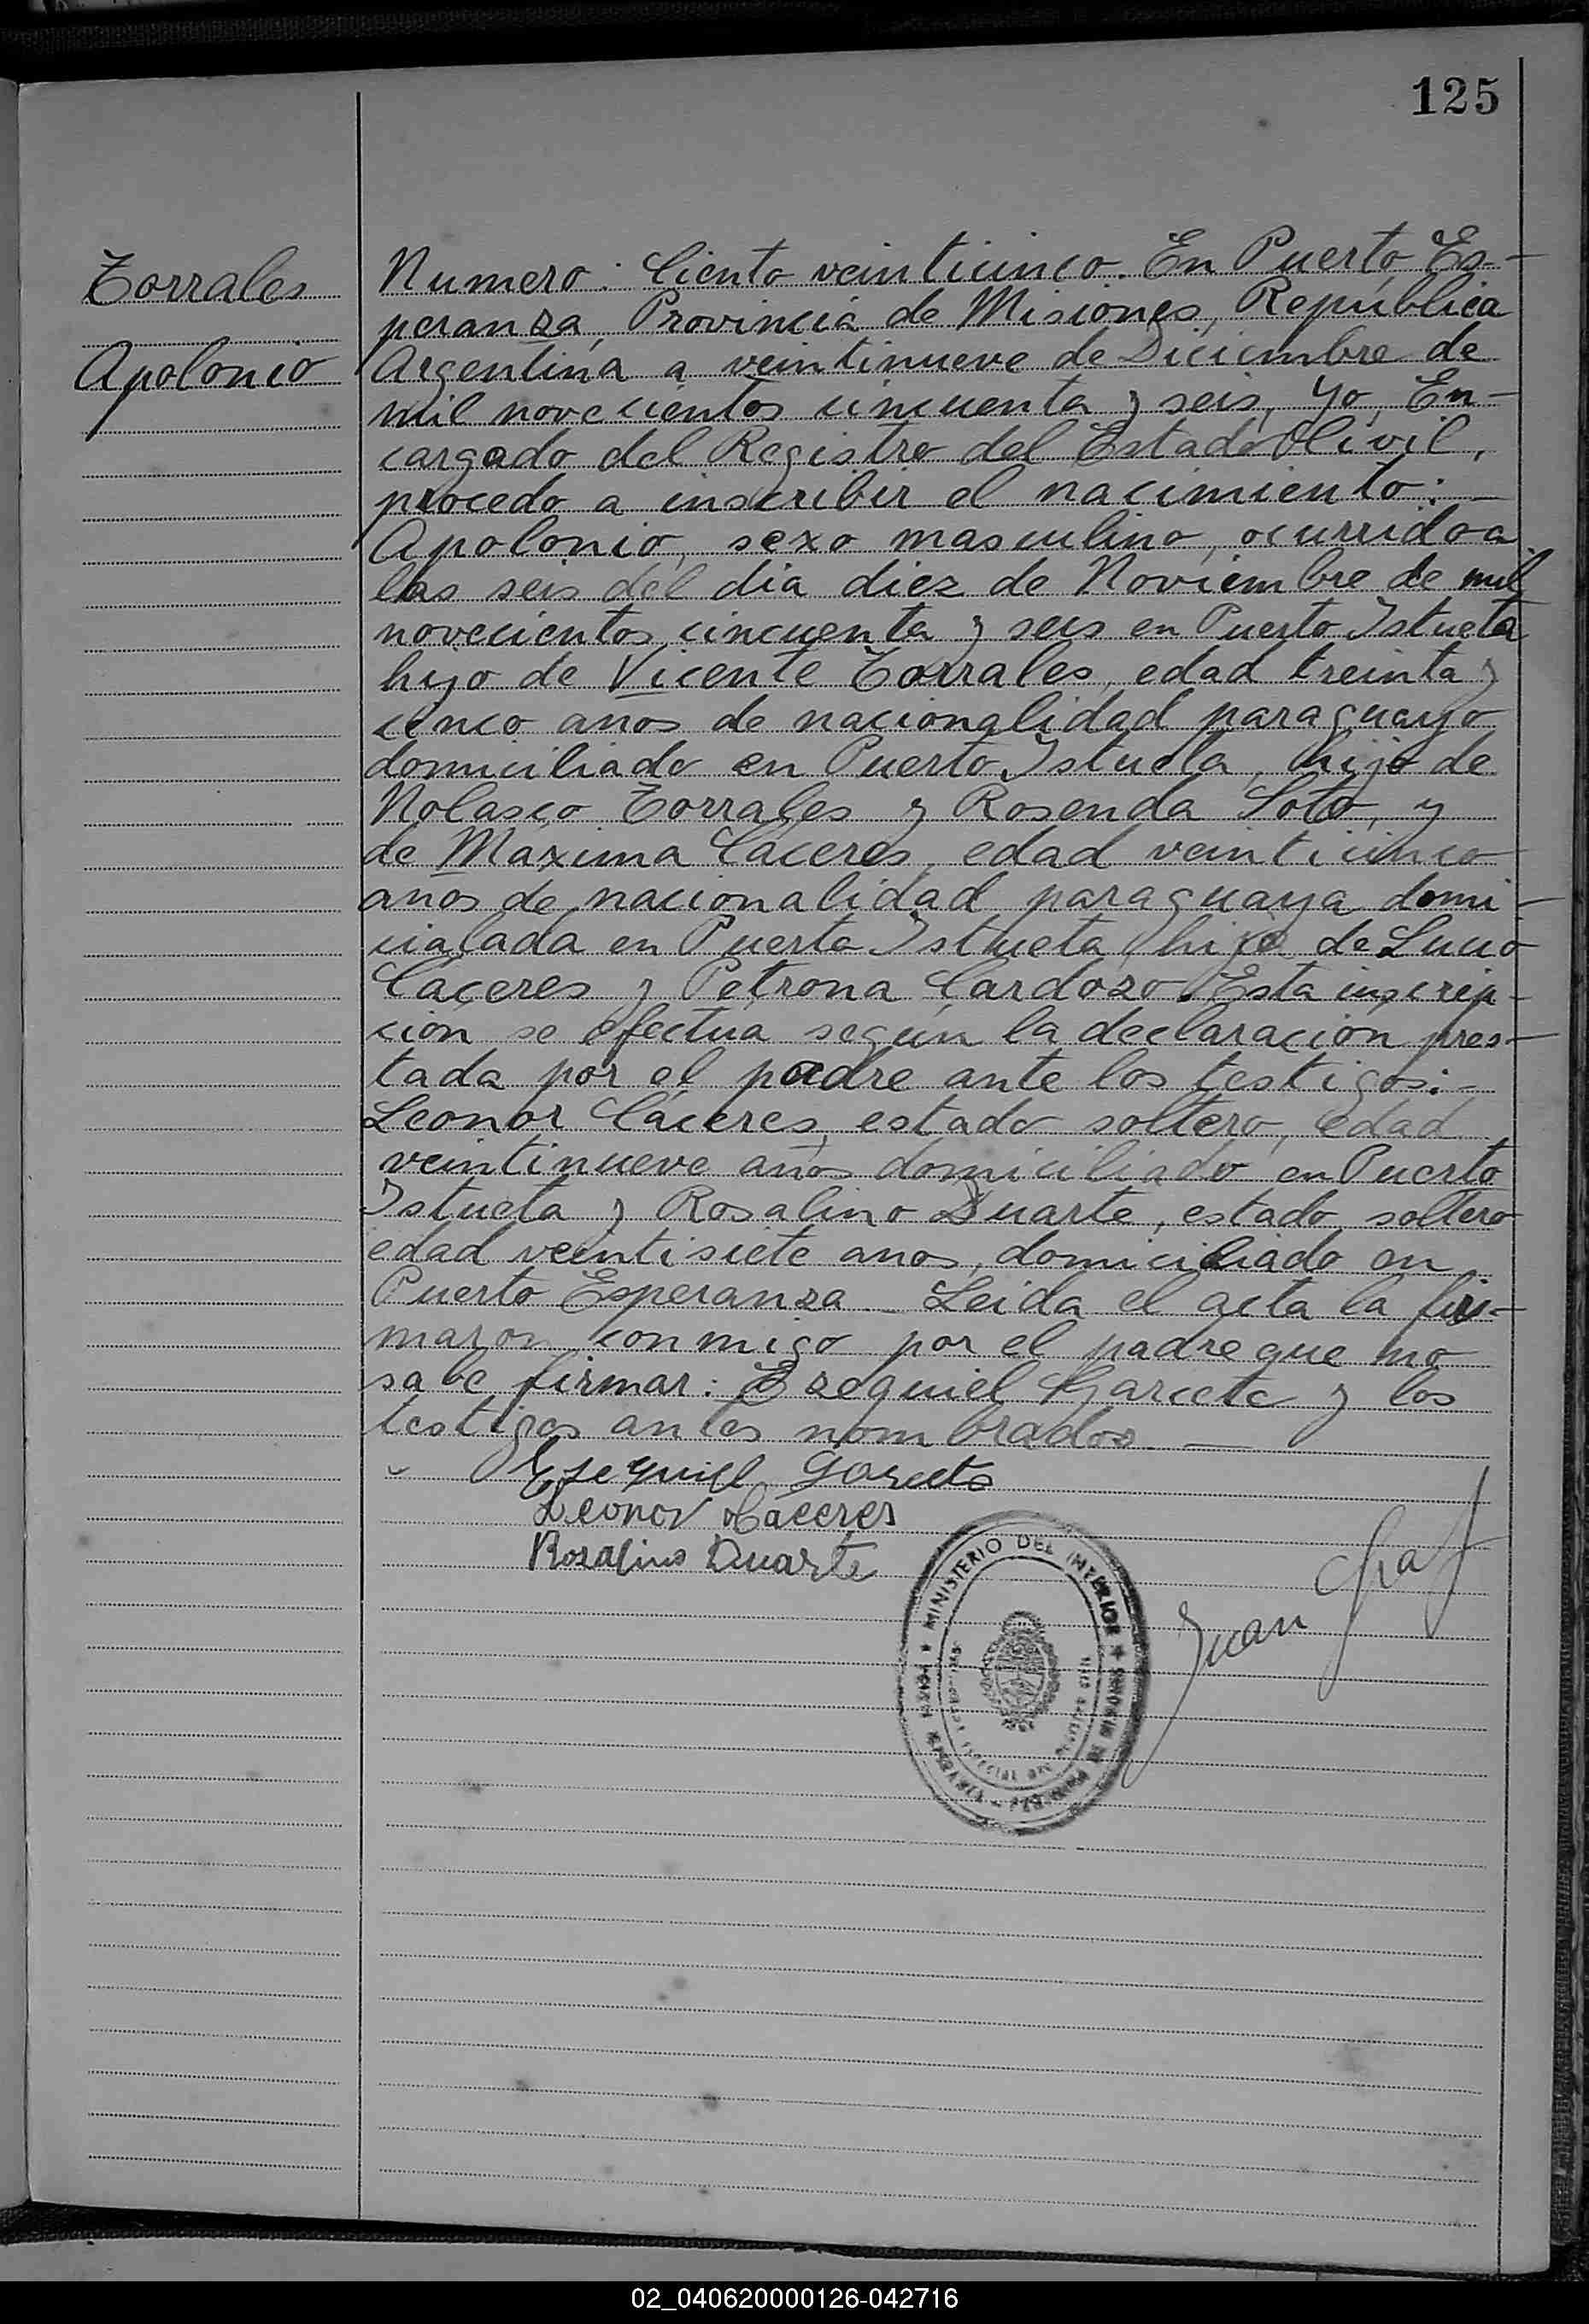 125
Torrales
Apolonio
Numero: Ciento veinticinco. En Puerto Es-
peranza, Provincia de Misiones, República
Argentina a veintinueve de Diciembre de
mil novecientos cincuenta y seis, Yo, En-
cargado del Registro del Estado Civil,
procedo a inscribir el nacimiento:-
Apolonio, sexo masculino, ocurrido a
las seis del dia diez de Noviembre de mil
novecientos cincuenta y seis en Puerto Istueta
hijo de Vicente Torrales, edad treinta y
cinco años de nacionalidad paraguayo
domiciliado en Puerto Istueta, hijo de
Nolasco Torrales y Rosenda Soto, y
de Maxima Caceres, edad veinticinco
años de nacionalidad paraguaya domi-
cialada en Puerto Istueta, hija de Lucio
Caceres y Petrona Cardozo. Esta inscrip-
cion se efectúa según la declaración pres-
tada por el padre ante los testigos:-
Leonor Cáceres, estado soltero, edad
veintinueve años domiciliado en Puerto
Istueta y Rosalino Duarte, estado soltero
edad veintisiete anos, domiciliado en
Puerto Esperanza. Leida el acta la fir-
maron conmigo por el padre que no
sabe firmar: Ezequiel Garcete y los
testigos antes nombrados. —
Ezequiel Garcete
Leonor Caceres
Rosalino Duarte
Juan Graf
MINISTERIO DEL INTERIOR
02_040620000126-042716